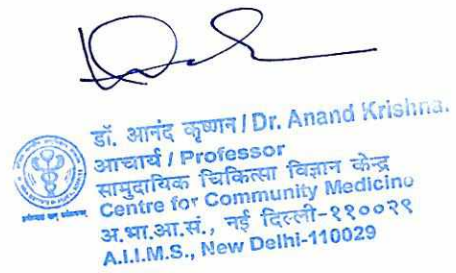 डॉ. आनंद कृष्णन / Dr. Anand Krishna.
आचार्य / Professor
सामुदायिक चिकित्सा विज्ञान केन्द्र
Centre for Community Medicine
अ.भा.आ.सं., नई दिल्ली-११००२९
A.I.I.M.S., New Delhi-110029